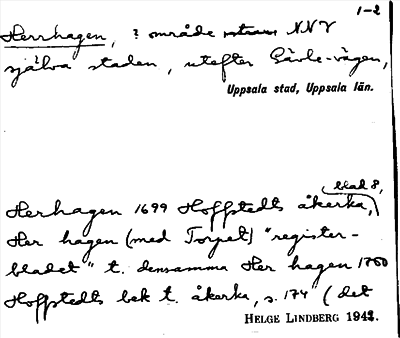 1-2
Herrhagen, ? område utom NNV
själva staden, utefter Gävle-vägen,
Uppsala stad, Uppsala län.
blad 8,
Herhagen 1699 Hoffstedts åkerka,
Her hagen (med Torpet) "register-
bladet" t. densamma Her hagen 1700
Hoffstedts bek t. åkerka, s. 174 (det
HELGE LINDBERG 1942.